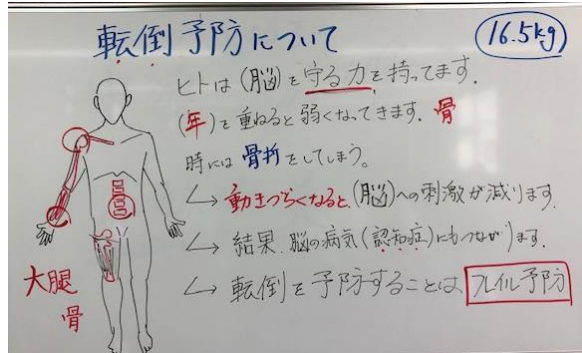 転倒予防について
16.5kg
ヒトは(脳)を守る力を持ってます.
(年)を重ねると弱くなってきます. 骨
時には骨折をしてしまう。
↳ 動きづらくなると,(脳)への刺激が減ります.
↳ 結果、脳の病気(認知症)にもつながります.
↳ 転倒を予防することは フレイル予防
大腿
骨